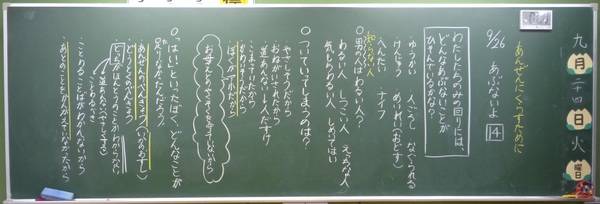 九月二十四日火曜日
あんぜんにくらすために
9/26 あぶないよ 14
わたしたちのみの回りには、
どんなあぶないことが
ひそんでいるのかな?
・ゆうかい 人ごろし なぐられる
・けんじゅう めいれい(おどす)
・へんたい ナイフ
知らない人
○男の人はわるい人?
わるい人 しつこい人 えっちな人
気もちわるい人 しめてはい
○ついていってしまうのは?
やさしそうだから
おねがいされたから
道あんないしてんだすけ
こまっていたから
かわいそうだから
ぼくがアホだから
お母さんたちのやくそくを守っていないから
○「はい」といったぼく、どんなことが
足りなかったんだろう。
・あんぜんのべんきょう(いのおすし)
・どうとくのべんきょう
・どっちがほんとうのことかわからない
道あんない(やさしさ)
ことわるべき
・ことわることばがわかんないから
・あとのことをかんがえていなかったから